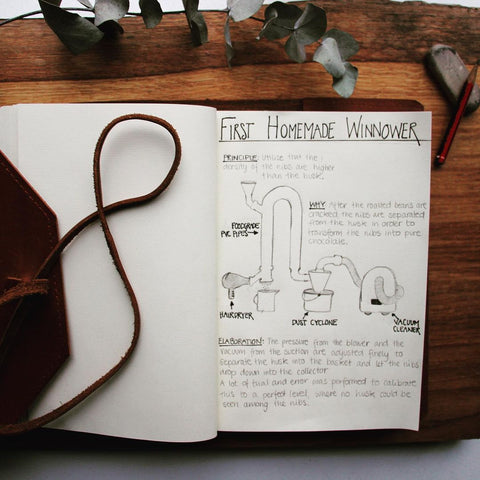 FIRST HOMEMADE WINNOWER
PRINCIPLE: Utilize that the
density of the nibs are higher
than the husk.
WHY: After the roasted beans are
cracked the nibs are separated
from the husk in order to
transform the nibs into pure
chocolate.
FOODGRADE
PVC PIPES
HAIRDRYER
DUST CYCLONE
VACUUM
CLEANER
ELABORATION: The pressure from the blower and the
vacuum from the suction are adjusted finely to
separate the husk into the basket and let the nibs
drop down into the collector.
A lot of trial and error was performed to calibrate
this to a perfect level, where no husk could be
seen among the nibs.